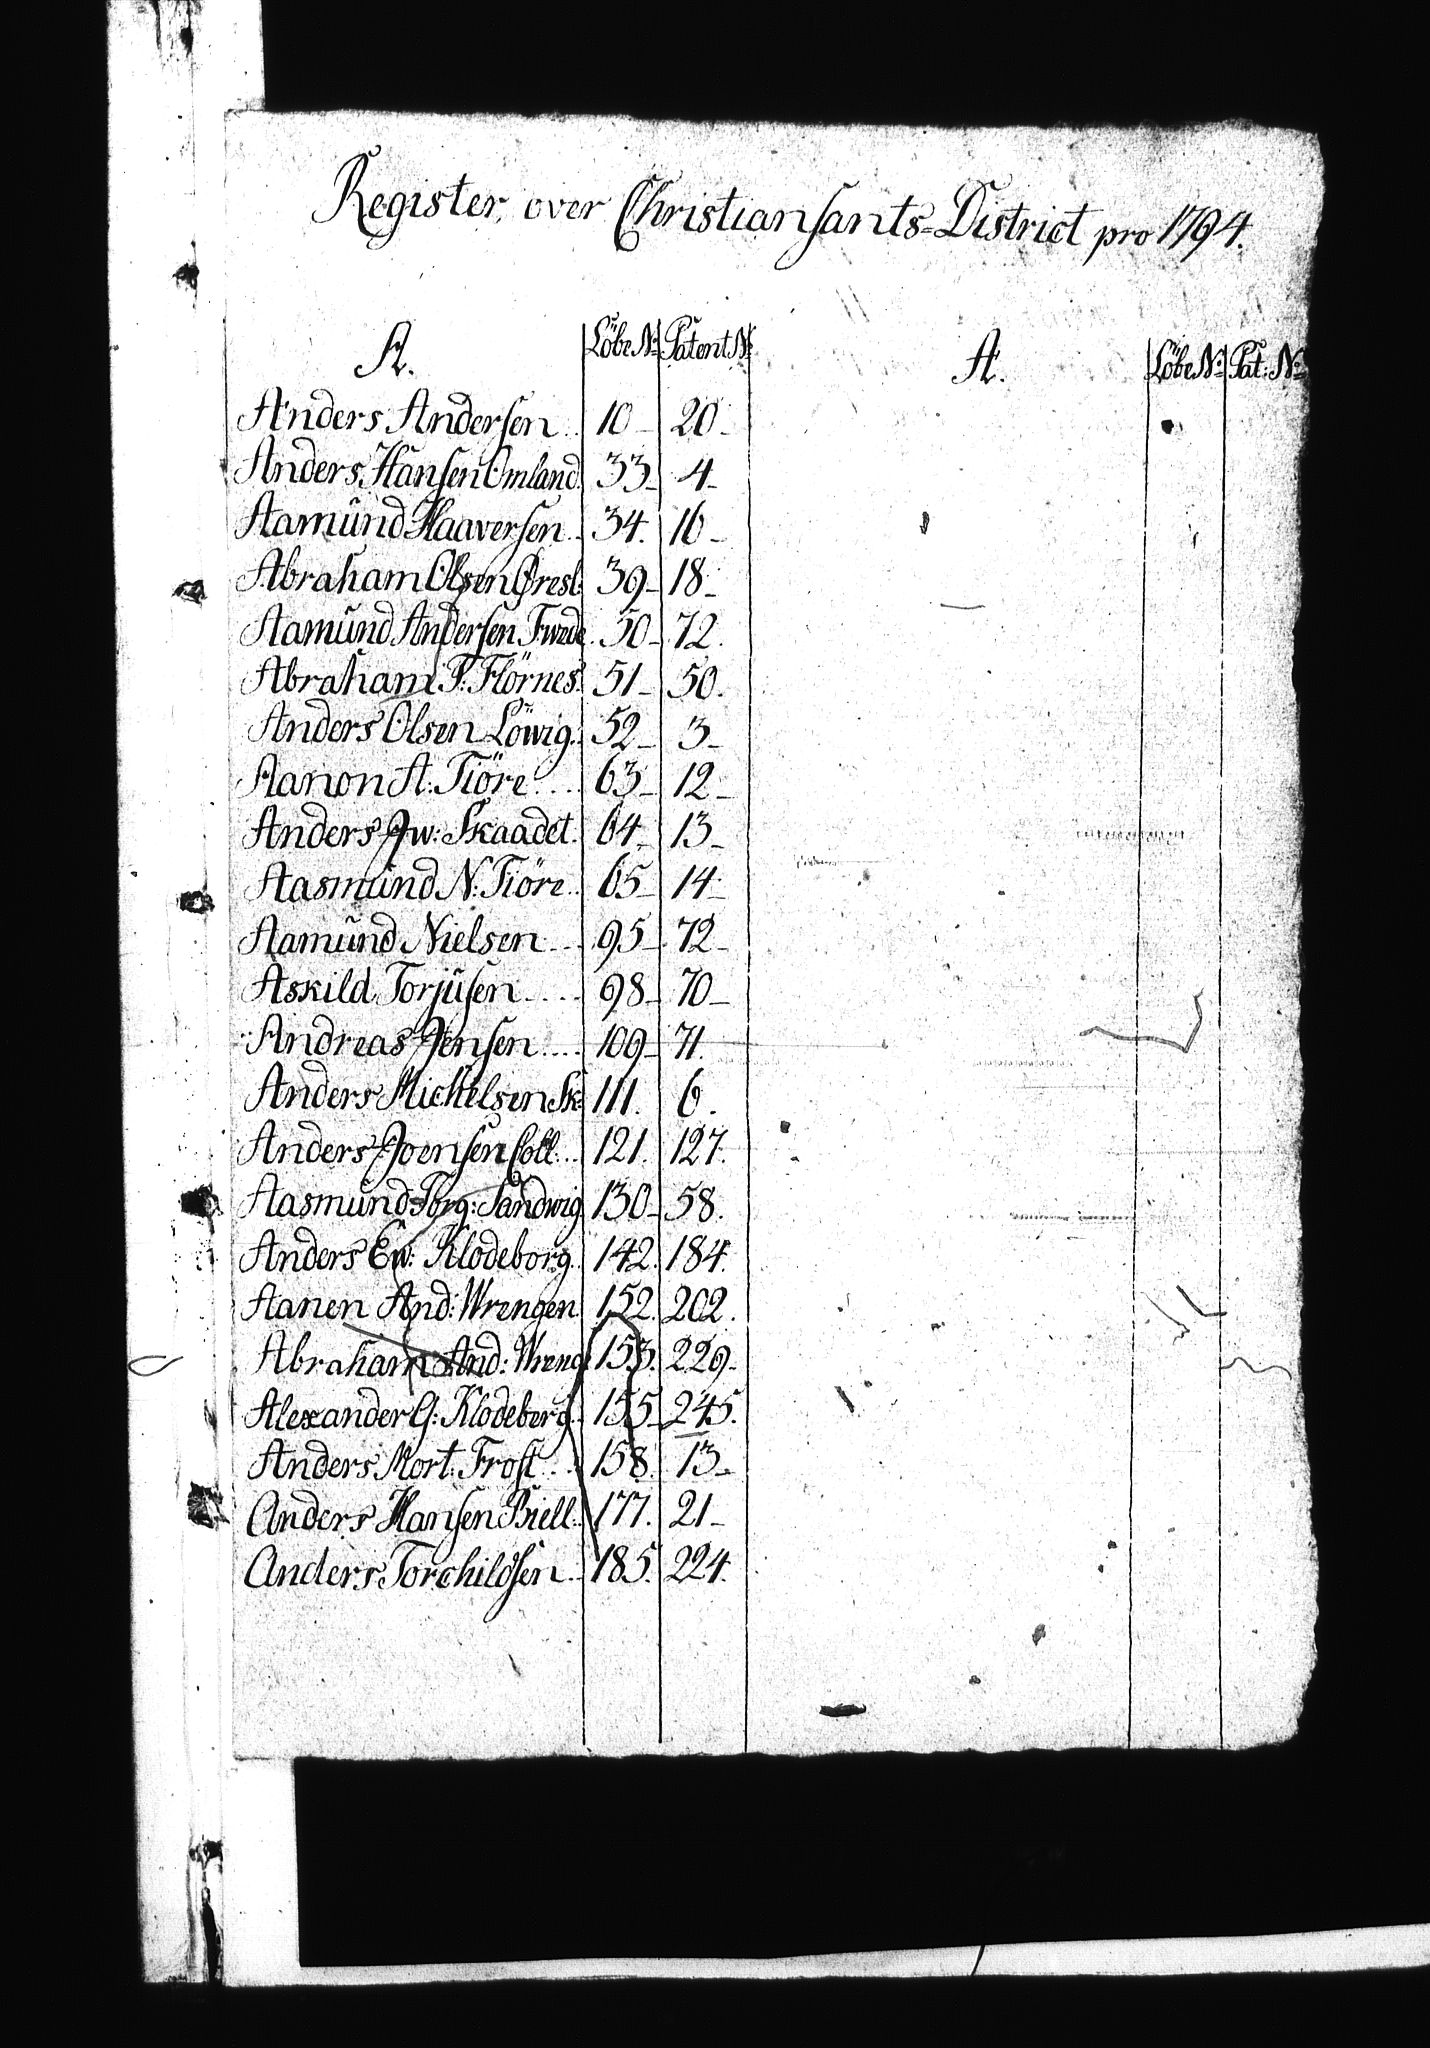 Register over Christiansants=District pro 1794.
A. Löbe No Patent No A. Löbe No Pat: No
Anders Andersen .. 10 - 20 -
Anders Hansen Omland. 33 - 4 -
Aamund Haaversen .. 34. 16 -
Abraham Olsen Øresl: 39 - 18 -
Aamund Andersen Fwede. 50 - 72.
Abraham T: Flörnes. 51 - 50.
Anders Olsen Löwig. 52 - 3 -
Aanon A: Tiöre .... 63 - 12 -
Anders Jw: Skaadet. 64 - 13 -
Aasmund N: Tiöre .. 65 - 14 -
Aamund Nielsen ... 95 - 72 -
Askild Torjusen .... 98 - 70 -
Andreas Jensen .... 109 - 71.
Anders Michelsen Sk: 111. 6.
Anders Joensen Coll ... 121. 127.
Aasmund Torg: Sandwig 130 - 58.
Anders Ew: Klodeborg. 142. 184.
Aanen And: Wrengen. 152. 202.
Abraham And: Wreng: 153. 229 -
Alexander G: Klodeberg. 155 - 245.
Anders Mort: Frost ... 158. 13 -
Anders Hansen Biell: 177. 21 -
Anders Torchildsen .. 185. 224.